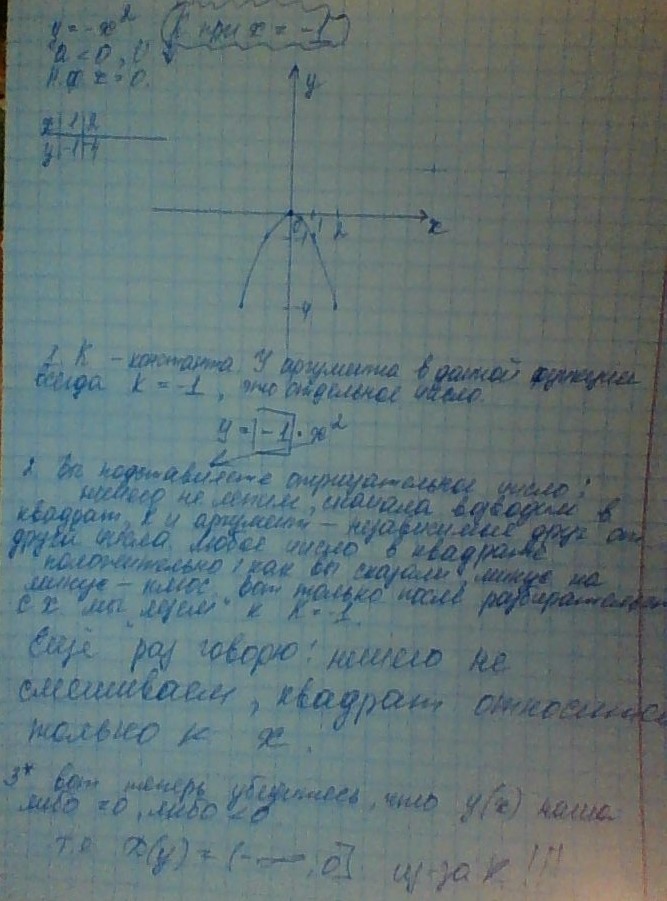 y = -x² K при x = -1
a < 0,
x = 0.
y
x | 1 | 2
y | -1 | -4
0 1 2 x
-1
-4
1. K - константа. У аргумента в данной функции
всегда K = -1, это отдельное число.
y = |-1| · x²
2. Вы подставляете отрицательное число:
ничего не лепим, сначала возводим в
квадрат, K и аргумент - независимые друг от
друга числа. Любое число в квадрате
положительно, как вы сказали, минус на
минус - плюс. Вот только после разбирательств
с x мы "лезем" к K = -1.
Ещё раз говорю: ничего не
смешиваем, квадрат относится
только к x.
3* Вот теперь убедитесь, что y(x) наша
либо =0, либо <0
т.е (y) = (-∞, 0] из-за K!!!